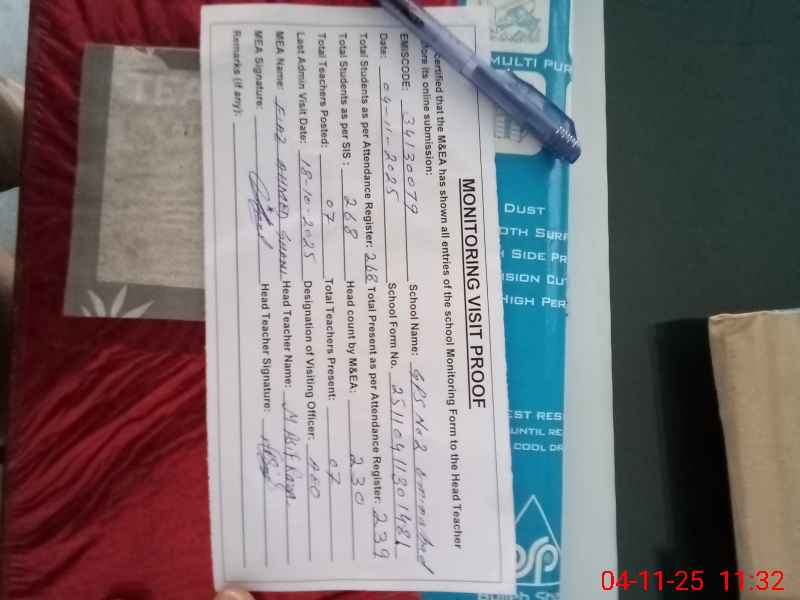 MONITORING VISIT PROOF
certified that the M&EA has shown all entries of the school Monitoring Form to the Head Teacher
fore its online submission:
EMISCODE: 34130079 School Name: GPS No 2
Date: 04-11-2025 School Form No. 2511041130148
Total Students as per Attendance Register: 268 Total Present as per Attendance Register: 239
Total Students as per SIS: 268 Head count by M&EA: 230
Total Teachers Posted: 07 Total Teachers Present: 07
Last Admin Visit Date: 18-10-2025 Designation of Visiting Officer:
MEA Name: AHMED Head Teacher Name: M
MEA Signature: Head Teacher Signature:
Remarks (if any):
MULTI PUR
DUST
OTH SURF
SIDE PR
ISION CU
HIGH PER
EST RES
UNTIL RE
COOL DR
04-11-25 11:32